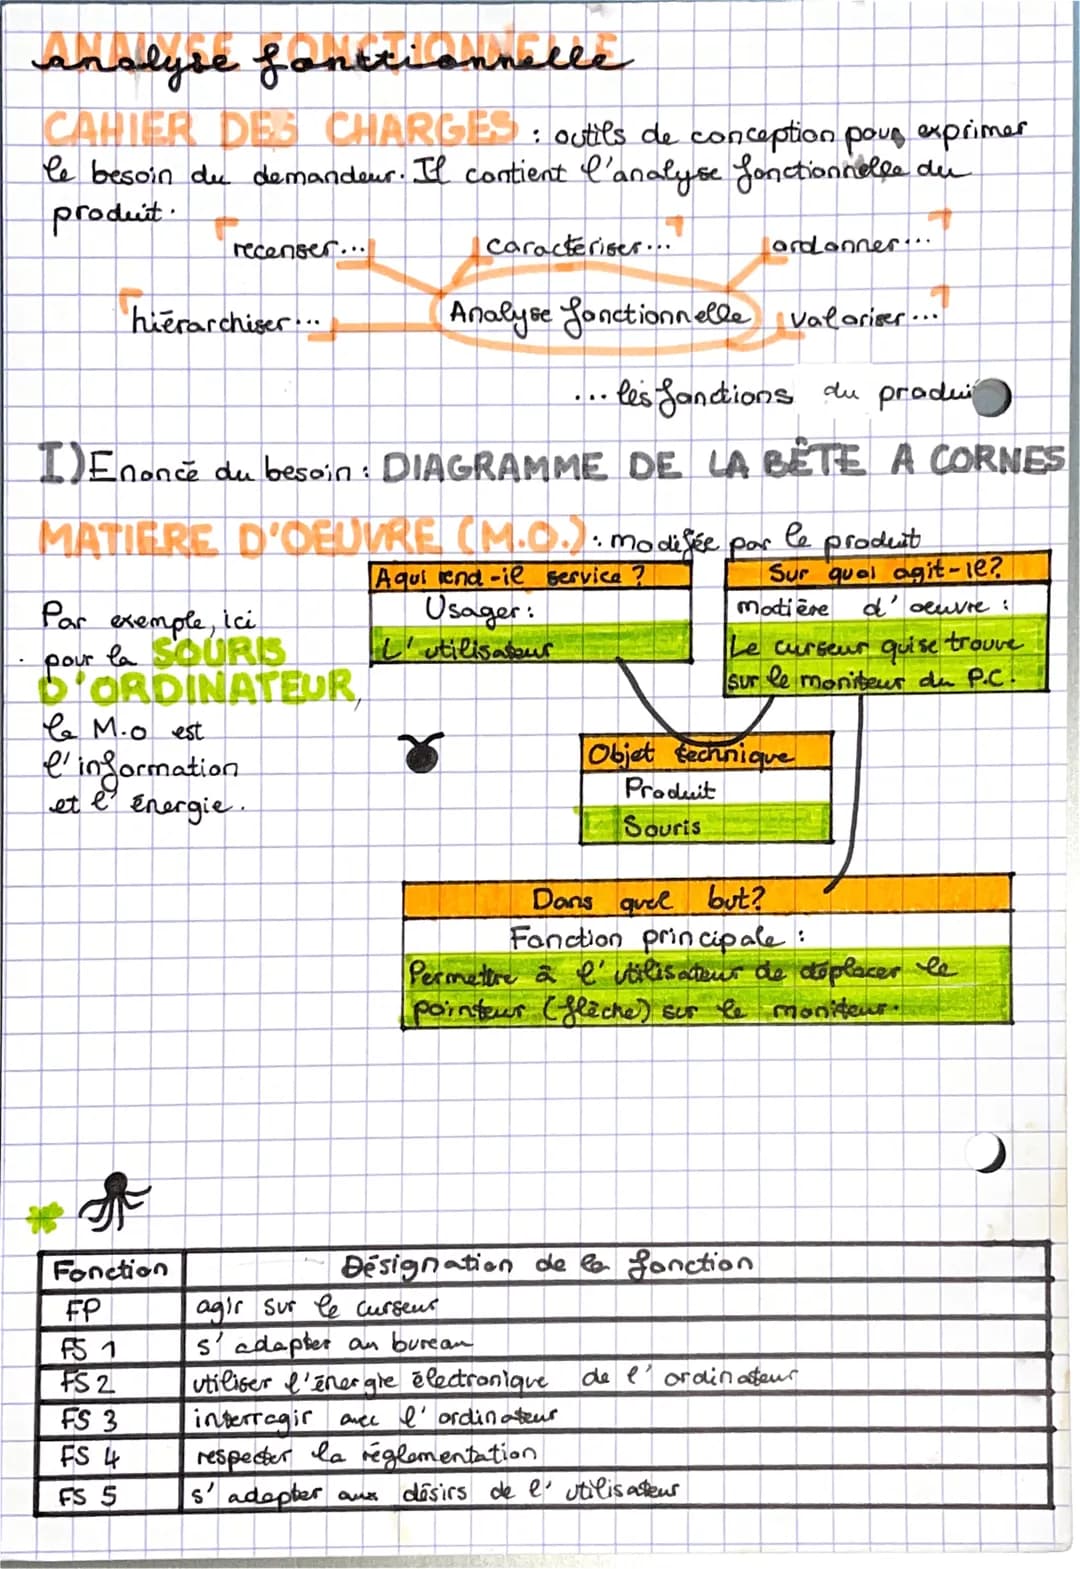 ANALYSE FONCTIONNELLE
analyse fonctionnelle
CAHIER DES CHARGES : outils de conception pour exprimer
le besoin du demandeur. Il contient l'analyse fonctionnelle du
produit.
recenser... caractériser... ordonner...
hiérarchiser... Analyse fonctionnelle valoriser...
... les fonctions du produi
I) Enoncé du besoin : DIAGRAMME DE LA BÊTE A CORNES
MATIERE D'OEUVRE (M.O.) : modifée par le produit
A qui rend-il service ?
Usager :
L'utilisateur
Sur quoi agit-il ?
matière d'oeuvre :
Le curseur qui se trouve
sur le moniteur du P.C.
Par exemple, ici
pour la SOURIS
D'ORDINATEUR,
la M.O est
l'information
et l'énergie.
Objet technique
Produit
Souris
Dans quel but?
Fonction principale :
Permettre à l'utilisateur de déplacer le
pointeur (flèche) sur le moniteur.
Fonction Désignation de la fonction
FP agir sur le curseur
FS 1 s'adapter au bureau
FS 2 utiliser l'énergie électronique de l'ordinateur
FS 3 interragir avec l'ordinateur
FS 4 respecter la réglementation
FS 5 s'adapter aux désirs de l'utilisateur